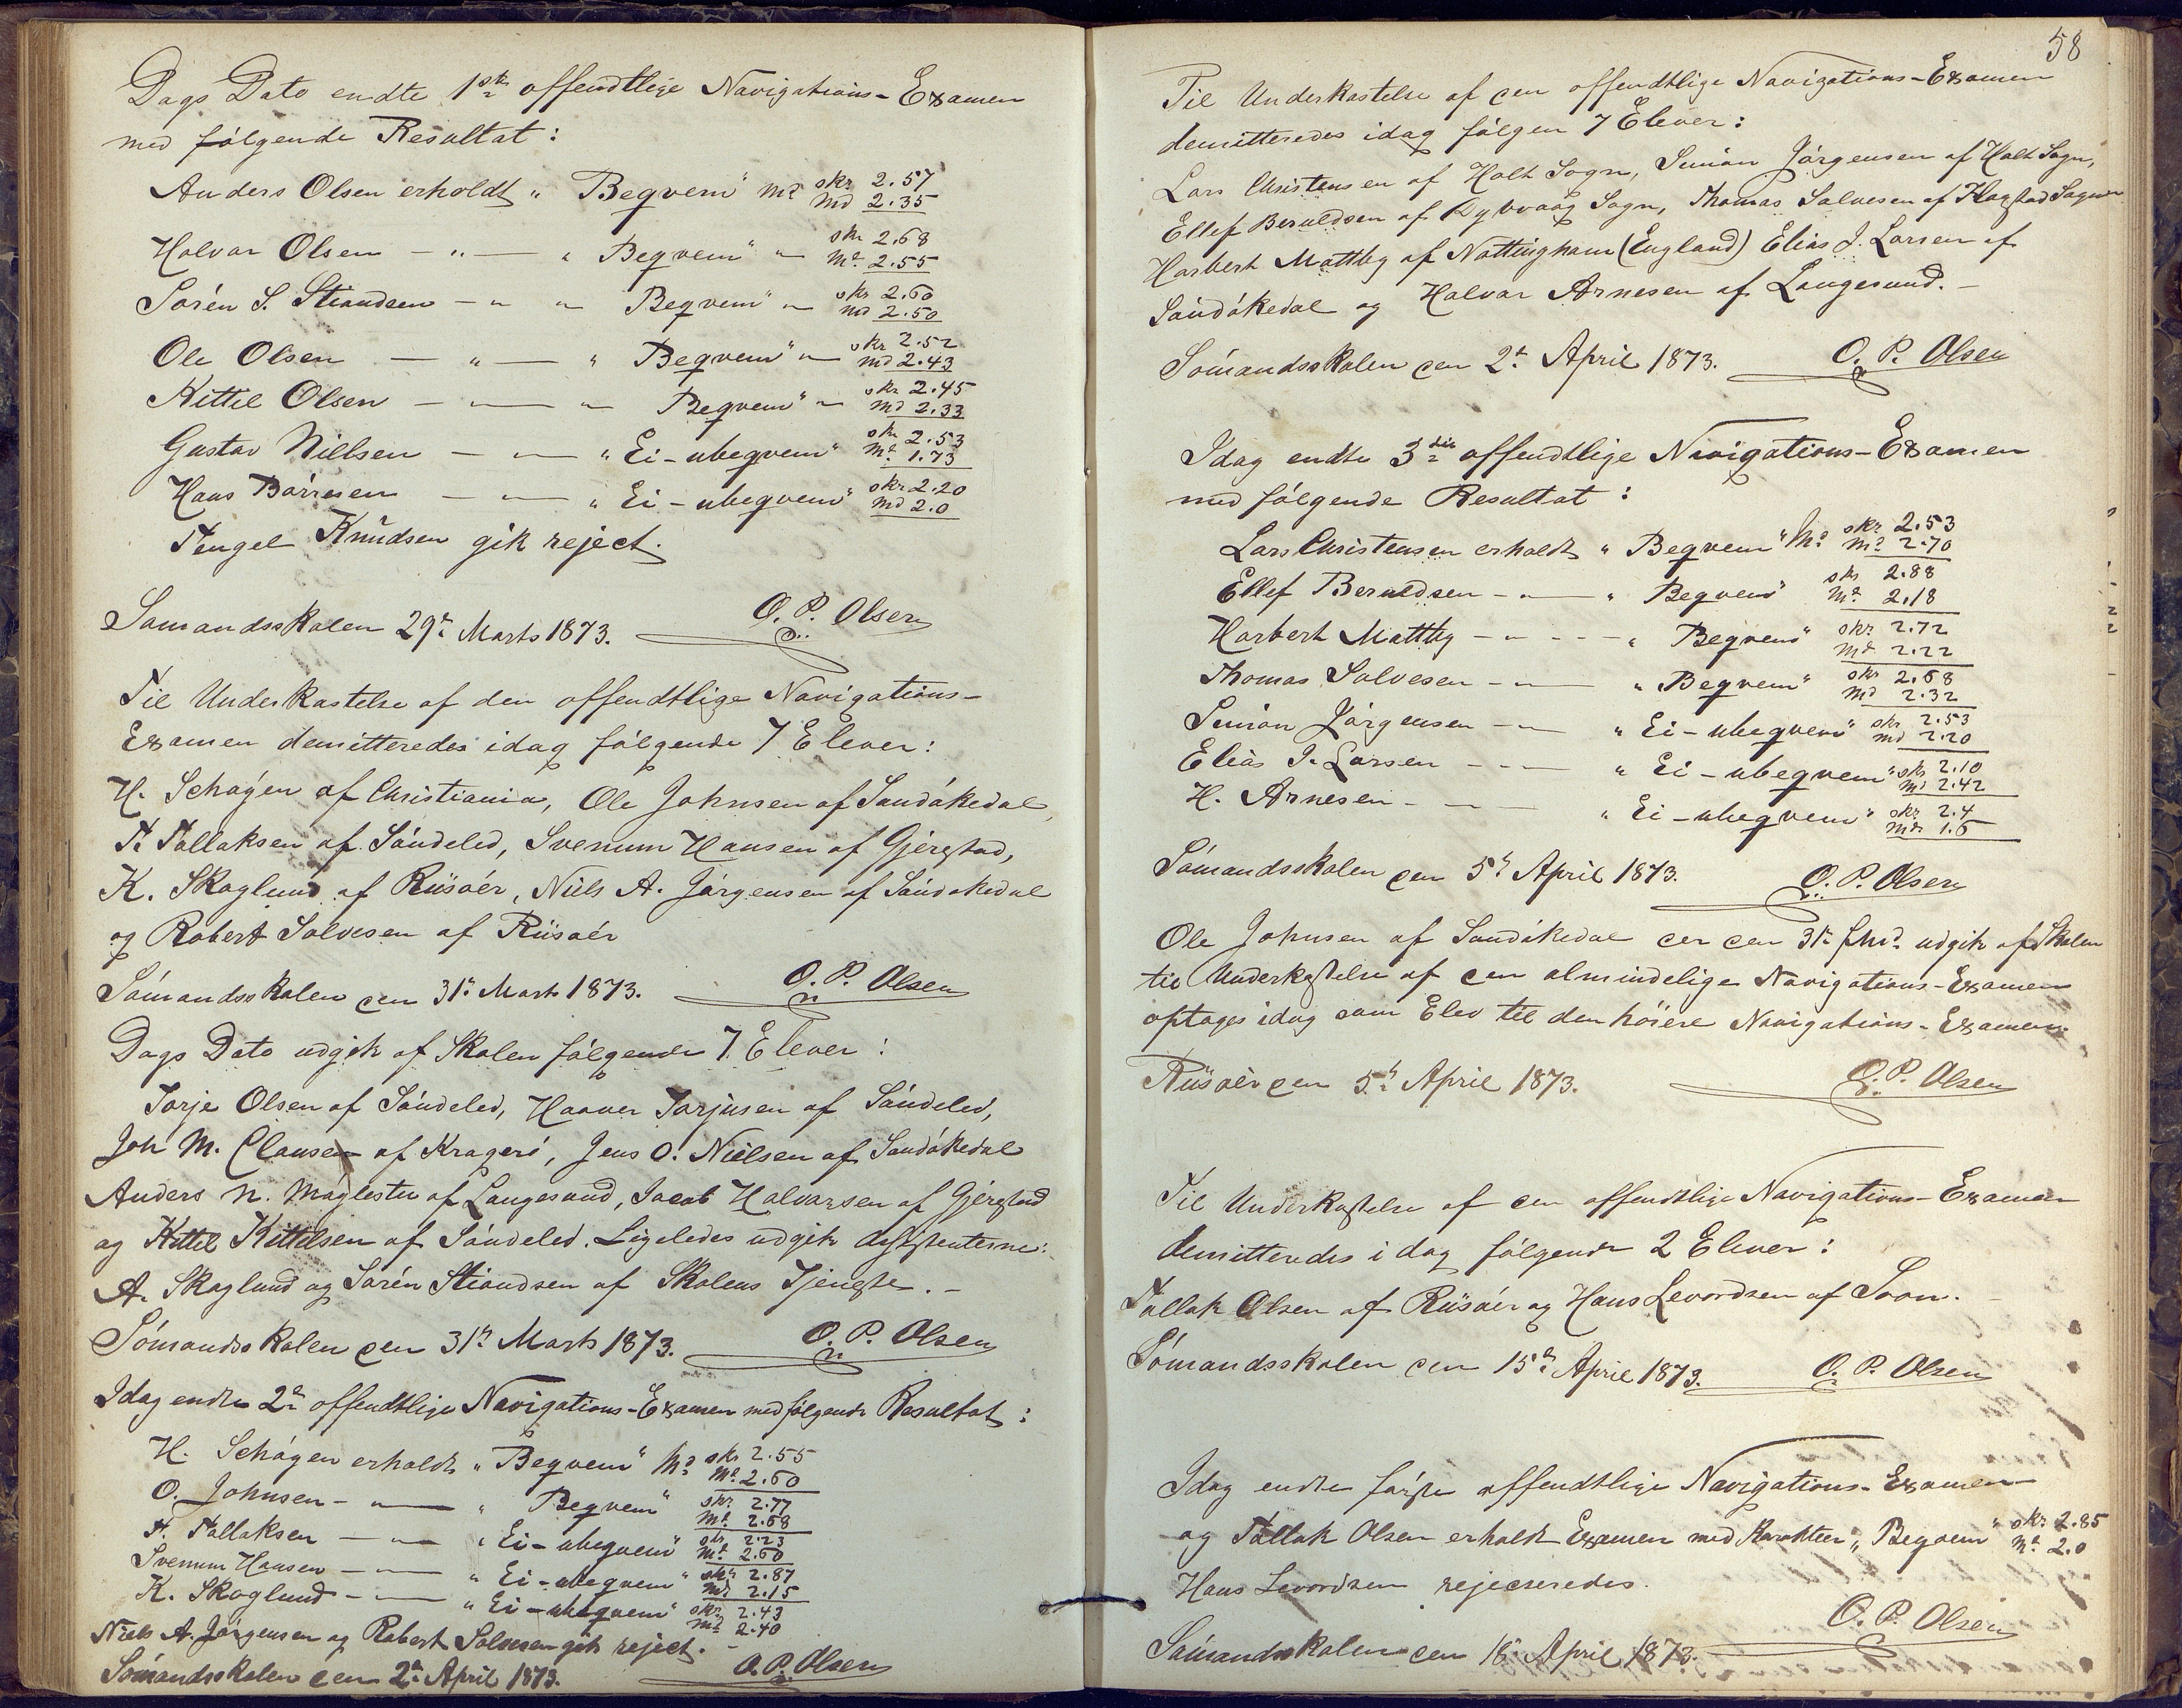 Dags Dato endte 1ste offendtlige Navigations-Examen
med fölgende Resultat:
Anders Olsen erholdt „ Beqvem" Md skr 2.57
Md 2.35
Halvor Olsen — „ — „ Beqvem" „ skr 2.68
Md 2.55
Sörén S. Stiandsen — „ „ Beqvem" „ skr 2.60
Md 2.50
Ole Olsen — „ — „ Beqvem" „ skr 2.52
Md 2.43
Kittil Olsen — „ — „ Beqvem" „ skr 2.45
Md 2.33
Gustav Nielsen — „ — „ Ei-ubeqvem" skr 2.53
Md 1.73
Hans Börresen — „ — „ Ei-ubeqvem" skr 2.20
Md 2.0
Tengel Knudsen gik reject.
Sömandsskolen 29de Marts 1873. O. P. Olsen
Til Underkastelse af den offendtlige Navigations-
Examen demitteredes idag fölgende 7 Elever:
H. Schögen af Christiania, Ole Johnsen af Sandökedal,
T. Tallaksen af Söndeled, Svenum Hansen af Gjerestad,
K. Skoglund af Riisöer, Niels A. Jörgensen af Sandökedal
og Robert Salvesen af Riisöer
Sömandsskolen den 31te Marts 1873. O. P. Olsen
Dags Dato udgik af Skolen fölgende 7 Elever:
Torje Olsen af Söndeled, Haaver Torjusen af Söndeled,
Joh M. Clausen af Kragerö, Jens O. Nielsen af Sandökedal
Anders N. Möglestu af Langesund, Jacob Halvorsen af Gjerestad
og Kittil Kittilsen af Söndeled. Ligeledes udgik Assistenterne:
A. Skoglund og Sörén Stiandsen af Skolens Tjeneste. –
Sömandsskolen den 31te Marts 1873. O. P. Olsen
Idag endte 2den offendtlige Navigations-Examen med fölgende Resultat:
H. Schögen erholdt „ Beqvem" Md skr 2.55
Md 2.60
O. Johnsen – „ — „ Beqvem" skr 2.77
Md 2.68
T. Tallaksen — „ — „ Ei-ubeqvem" skr 2.23
Md 2.60
Svenum Hansen — „ — „ Ei-ubeqvem" skr 2.87
Md 2.15
K. Skoglund – „ — „ Ei-ubeqvem" skr 2.43
Md 2.40
Niels A. Jörgensen og Robert Salvesen gik reject. –
Sömandsskolen den 2den April 1873. O. P. Olsen
58
Til Underkastelse af den offendtlige Navigations-Examen
demitteredes idag fölgen 7 Elever:
Lars Christensen af Holt Sogn, Simon Jörgensen af Holt Sogn,
Ellef Beruldsen af Dybvaag Sogn, Thomas Salvesen af Flagstad Sogn
Harbert Mattby af Nottingham (England) Elias J. Larsen af
Sandökedal og Halvor Arnesen af Langesund. –
Sömandsskolen den 2den April 1873. O. P. Olsen
Idag endte 3die offendtlige Navigations-Examen
med fölgende Resultat:
Lars Christensen erholdt „ Beqvem" Md skr 2.53
Md 2.70
Ellef Beruldsen – „ — „ Beqvem" skr 2.88
Md 2.18
Harbert Mattby – „ – – — „ Beqvem" skr 2.72
Md 2.22
Thomas Salvesen – „ — „ Beqvem" skr 2.68
Md 2.32
Simon Jörgensen – „ — „ Ei-ubeqvem" skr 2.53
Md 2.20
Elias J. Larsen – – — „ Ei-ubeqvem" skr 2.10
Md 2.42
H. Arnesen – „ — „ Ei-ubeqvem" skr 2.4
Md 1.6
Sömandsskolen den 5te April 1873. O. P. Olsen
Ole Johnsen af Sandökedal der den 31te f. Md. udgik af Skolen
til Underkastelse af den almindelige Navigations-Examen
optages idag som Elev til den höiere Navigations-Examen.
Riisöer den 5te April 1873. O. P. Olsen
Til Underkastelse af den offendtlige Navigations-Examen
demitteredes i dag fölgende 2 Elever:
Tallak Olsen af Riisöer og Hans Levordsen af Soon.
Sömandsskolen den 15de April 1873. O. P. Olsen
Idag endte förste offendtlige Navigations-Examen
og Tallak Olsen erholdt Examen med Karakteer „ Beqvem" skr 2.85
Md 2.0
Hans Levordsen rejecseredes.
Sömandsskolen den 18de April 1873. O. P. Olsen